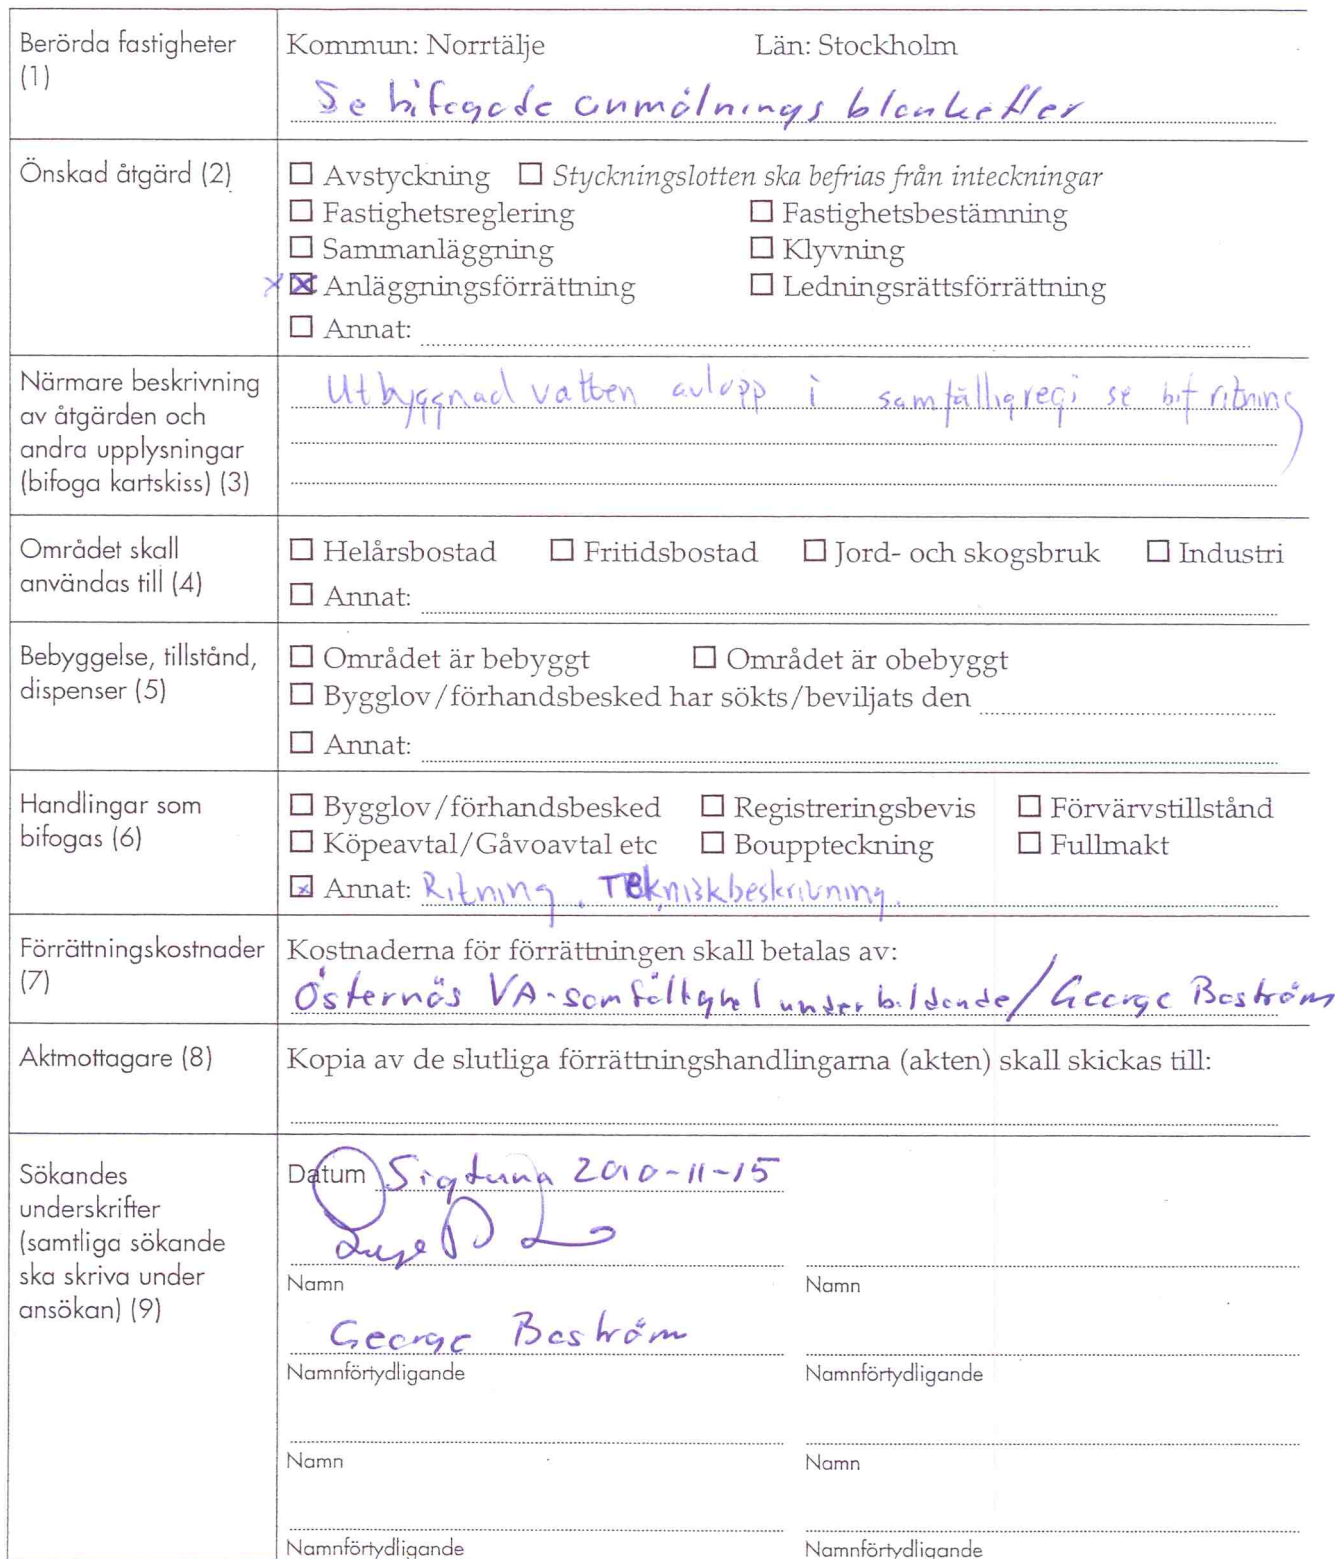 Berörda fastigheter (1)
Kommun: Norrtälje Län: Stockholm
Se bifogade anmälnings blanketter
Önskad åtgärd (2)
☐ Avstyckning ☐ Styckningslotten ska befrias från inteckningar
☐ Fastighetsreglering ☐ Fastighetsbestämning
☐ Sammanläggning ☐ Klyvning
x ☒ Anläggningsförrättning ☐ Ledningsrättsförrättning
☐ Annat:
Närmare beskrivning
av åtgärden och
andra upplysningar
(bifoga kartskiss) (3)
Utbyggnad vatten avlopp i samfälligregi se bif ritning
Området skall
användas till (4)
☐ Helårsbostad ☐ Fritidsbostad ☐ Jord- och skogsbruk ☐ Industri
☐ Annat:
Bebyggelse, tillstånd,
dispenser (5)
☐ Området är bebyggt ☐ Området är obebyggt
☐ Bygglov/förhandsbesked har sökts/beviljats den
☐ Annat:
Handlingar som
bifogas (6)
☐ Bygglov/förhandsbesked ☐ Registreringsbevis ☐ Förvärvstillstånd
☐ Köpeavtal/Gåvoavtal etc ☐ Bouppteckning ☐ Fullmakt
☒ Annat: Ritning, Tekniskbeskrivning.
Förrättningskostnader
(7)
Kostnaderna för förrättningen skall betalas av:
Östernäs VA-samfällighet under bildande/George Boström
Aktmottagare (8)
Kopia av de slutliga förrättningshandlingarna (akten) skall skickas till:
Sökandes
underskrifter
(samtliga sökande
ska skriva under
ansökan) (9)
Datum Sigtuna 2010-11-15
Namn Namn
George Boström
Namnförtydligande Namnförtydligande
Namn Namn
Namnförtydligande Namnförtydligande